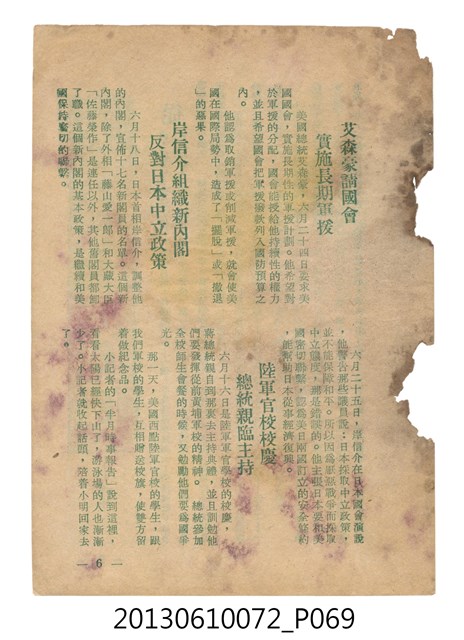 艾森豪請國會
實施長期軍援
美國總統艾森豪，六月二十四日要求美
國國會，實施長期性的軍援計劃。他希望對
於軍援的分配，國會能授給他持續性的權力
，並且希望國會把軍援撥款列入國防預算之
內。
他認為取銷軍援或削減軍援，就會使美
國在國際局勢中，造成了「擺脫」或「撤退
」的惡果。
岸信介組織新內閣
反對日本中立政策
六月十八日，日本首相岸信介，調整他
的內閣，宣佈十七名新閣員的名單。這個新
內閣，除了外相「藤山愛一郎」和大藏大臣
「佐藤榮作」是連任以外，其他舊閣員都卸
了職。這個新內閣的基本政策，是繼續和美
國保持密切的聯繫。
六月二十五日，岸信介在日本國會演說
，他警告那些議員說：日本採取中立政策，
並不能保障和平。所以因為厭惡戰爭而採取
中立態度，那是錯誤的。他主張日本要和美
國密切聯繫，認為美日兩國訂立的安全條約
，能幫助日本從事經濟復興。
陸軍官校校慶
總統親臨主持
六月十六日是陸軍軍官學校的校慶，
蔣總統親自到那裏去主持典禮，並且訓勉他
們要發揮從前黃埔軍校的精神。總統參加
全校師生會餐的時候，又勉勵他們要為國爭
光。
那一天，美國西點陸軍官校的學生，跟
我們軍校的學生，互相贈送校旗，使雙方留
着做紀念品。
小記者的「一半月時事報告」說到這裡，
看看太陽已經快下山了，游泳場的人也漸漸
少了。小記者就收起話頭，陪着小明回家去
了。
— 6 —
20130610072_P069